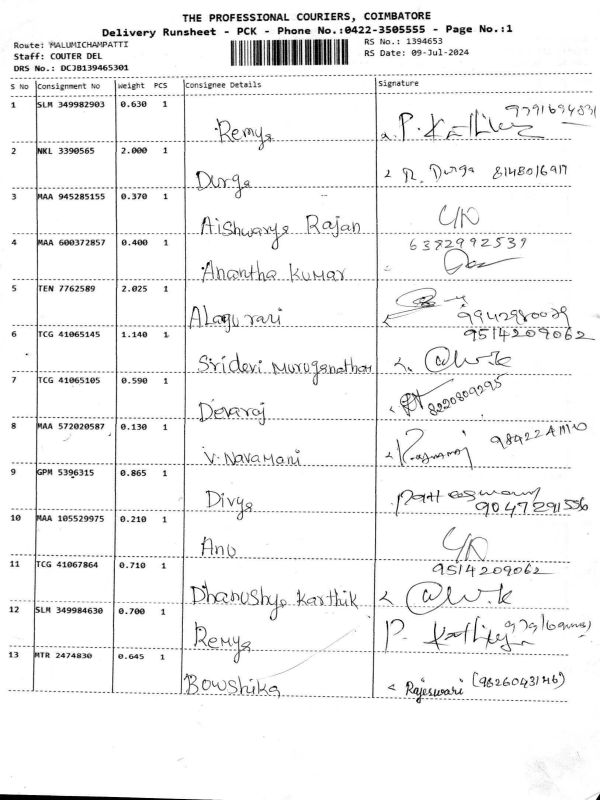 THE PROFESSIONAL COURIERS, COIMBATORE
Delivery Runsheet - PCK - Phone No.:0422-3505555 - Page No.:1
Route: MALUMICHAMPATTI
RS No.: 1394653
Staff: COUTER DEL
RS Date: 09-Jul-2024
DRS No.: DCJB139465301
S No Consignment No Weight PCS Consignee Details Signature
1 SLM 349982903 0.630 1
Remya P. Karthikey
2 NKL 3390565 2.000 1
Durga R. Durga 8148016917
3 MAA 945285155 0.370 1
Aishwarya Rajan
4 MAA 600372857 0.400 1 6382992539
Anantha Kumar
5 TEN 7762589 2.025 1
Alagu rani 9942980029
6 TCG 41065145 1.140 1 9514209062
Sridevi Muruganathan
7 TCG 41065105 0.590 1
Devaraj 8220809295
8 MAA 572020587 0.130 1
V. Navamani
9 GPM 5396315 0.865 1
Divya 9047291556
10 MAA 105529975 0.210 1
Anu
11 TCG 41067864 0.710 1 9514209062
Dhanushya Karthik
12 SLM 349984630 0.700 1
Remya P. Karthikey
13 MTR 2474830 0.645 1
Bowshika Rajeswari (9826043146)